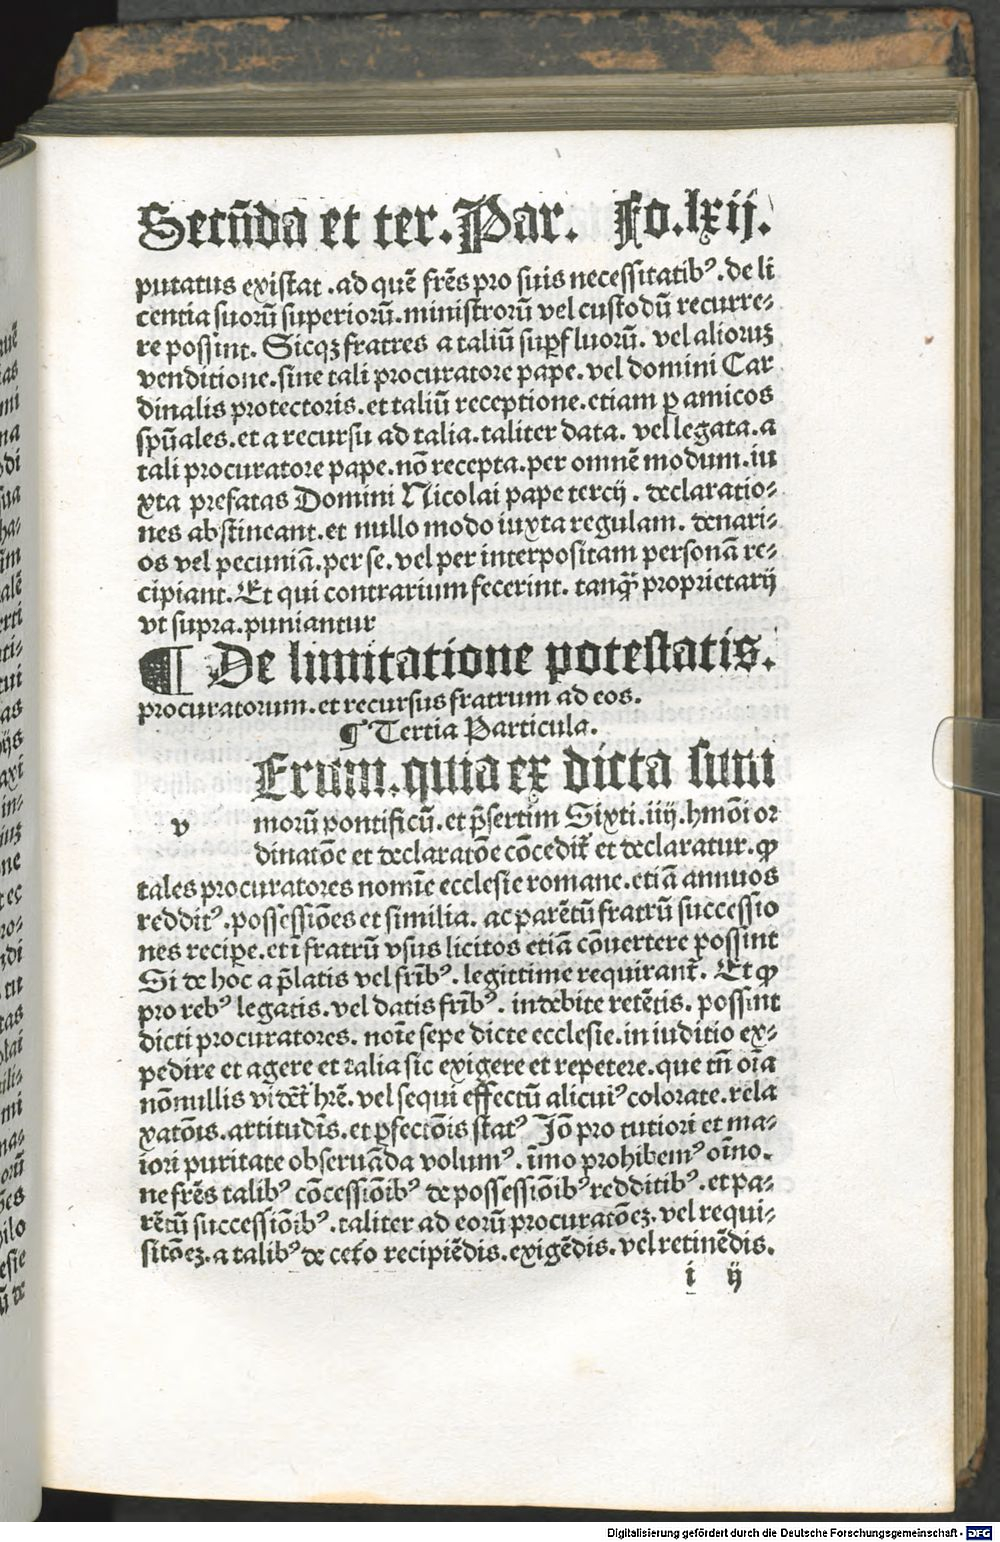 Secūda et ter. Par. Fo. lxij.
putatus existat . ad quē frēs pro suis necessitatibꝰ . de li
centia suorū superiorū . ministrorū vel custodū recurre-
re possint. Sicqꝫ fratres a taliū suꝑfluorū . vel alioruꝫ
venditione . sine tali procuratore pape . vel domini Car
dinalis protectoris . et taliū receptione . etiam ꝑ amicos
spūales . et a recursu ad talia . taliter data . vel legata . a
tali procuratore pape . nō recepta . per omnē modum . iu
xta prefatas Domini Nicolai pape tercij . declaratio-
nes abstineant . et nullo modo iuxta regulam . denari-
os vel pecuniā . per se . vel per interpositam personā re-
cipiant. Et qui contrarium fecerint . tanꝗ̃ proprietarij
vt supra . puniantur
¶ De limitatione potestatis.
procuratorum . et recursus fratrum ad eos.
¶ Tertia Particula.
Erum . quia ex dicta sum
v morū pontificū . et p̄sertim Sixti . iiij . hmōi or
dinatōe et declaratōe cōcedit᷑ et declaratur . ꝙ
tales procuratores nomīe ecclesie romane . etiā annuos
redditꝰ . possessiōes et similia . ac parētū fratrū successio
nes recipe . et ī fratrū vsus licitos etiā cōuertere possint
Si de hoc a p̄latis vel frībꝰ . legittime requirant᷑. Et ꝙ
pro rebꝰ legatis . vel datis frībꝰ . indebite retētis . possint
dicti procuratores . noīe sepe dicte ecclesie . in iuditio ex-
pedire et agere et talia sic exigere et repetere . que tn̄ oīa
nōnullis vident᷑ hrē . vel sequi effectū alicuiꝰ colorate . rela
xatōis . artitudīs . et ꝑfectōis statꝰ Iō pro tutiori et ma-
iori puritate obseruāda volumꝰ . īmo prohibemꝰ oīno .
ne frēs talibꝰ cōcessiōibꝰ de possessiōibꝰ redditibꝰ . et pa-
rētū successiōibꝰ . taliter ad eorū procuratōeꝫ . vel requi-
sitōeꝫ . a talibꝰ de cet᷑o recipiēdis . exigēdis . vel retinēdis.
i ij
Digitalisierung gefördert durch die Deutsche Forschungsgemeinschaft - DFG